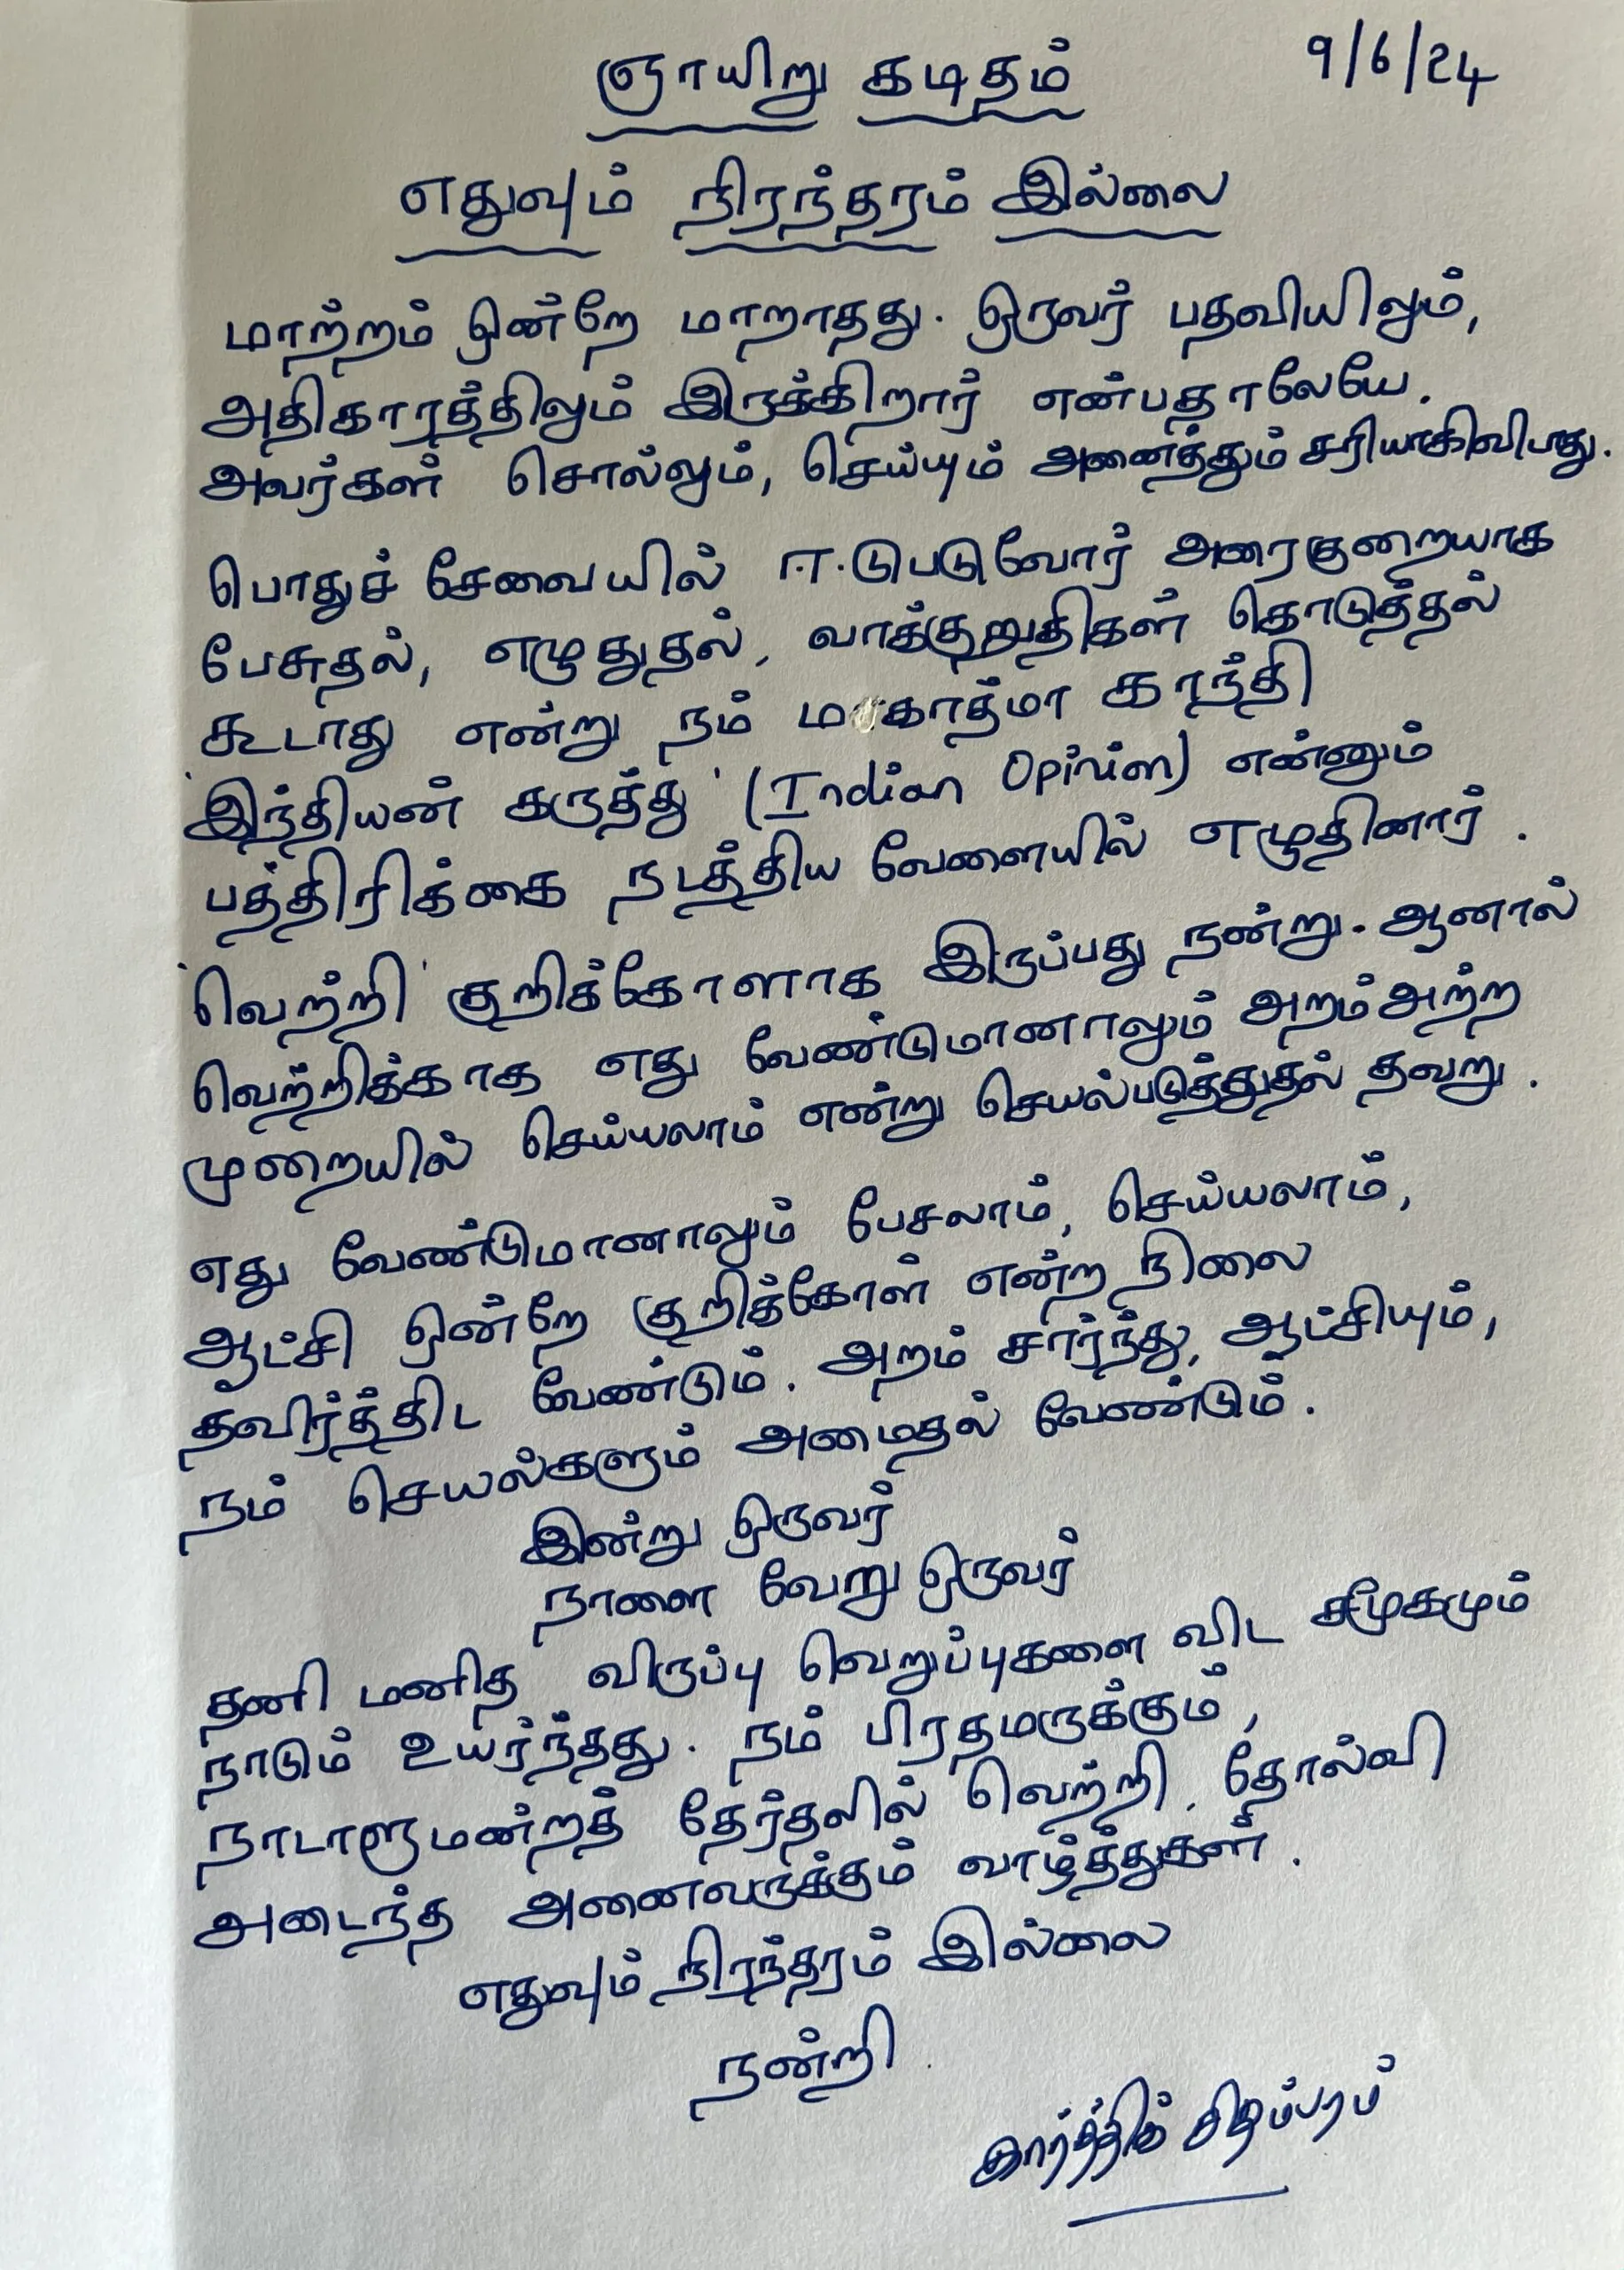 ஞாயிறு கடிதம்
9/6/24
எதுவும் நிரந்தரம் இல்லை
மாற்றம் ஒன்றே மாறாதது. ஒருவர் பதவியிலும்,
அதிகாரத்திலும் இருக்கிறார் என்பதாலேயே.
அவர்கள் சொல்லும், செய்யும் அனைத்தும் சரியாகிவிடாது.
பொதுச் சேவையில் ஈடுபடுவோர் அரைகுறையாக
பேசுதல், எழுதுதல், வாக்குறுதிகள் கொடுத்தல்
கூடாது என்று நம் மகாத்மா காந்தி
'இந்தியன் கருத்து' (Indian Opinion) என்னும்
பத்திரிக்கை நடத்திய வேளையில் எழுதினார்.
'வெற்றி' குறிக்கோளாக இருப்பது நன்று. ஆனால்
வெற்றிக்காக எது வேண்டுமானாலும் அறம்அற்ற
முறையில் செய்யலாம் என்று செயல்படுத்துதல் தவறு.
எது வேண்டுமானாலும் பேசலாம், செய்யலாம்,
ஆட்சி ஒன்றே குறிக்கோள் என்ற நிலை
தவிர்த்திட வேண்டும். அறம் சார்ந்து, ஆட்சியும்,
நம் செயல்களும் அமைதல் வேண்டும்.
இன்று ஒருவர்
நாளை வேறு ஒருவர்
தனி மனித விருப்பு வெறுப்புகளை விட சமூகமும்
நாடும் உயர்ந்தது. நம் பிரதமருக்கும்,
நாடாளுமன்றத் தேர்தலில் வெற்றி, தோல்வி
அடைந்த அனைவருக்கும் வாழ்த்துகள்.
எதுவும் நிரந்தரம் இல்லை
நன்றி.
கார்த்திக் சிதம்பரம்